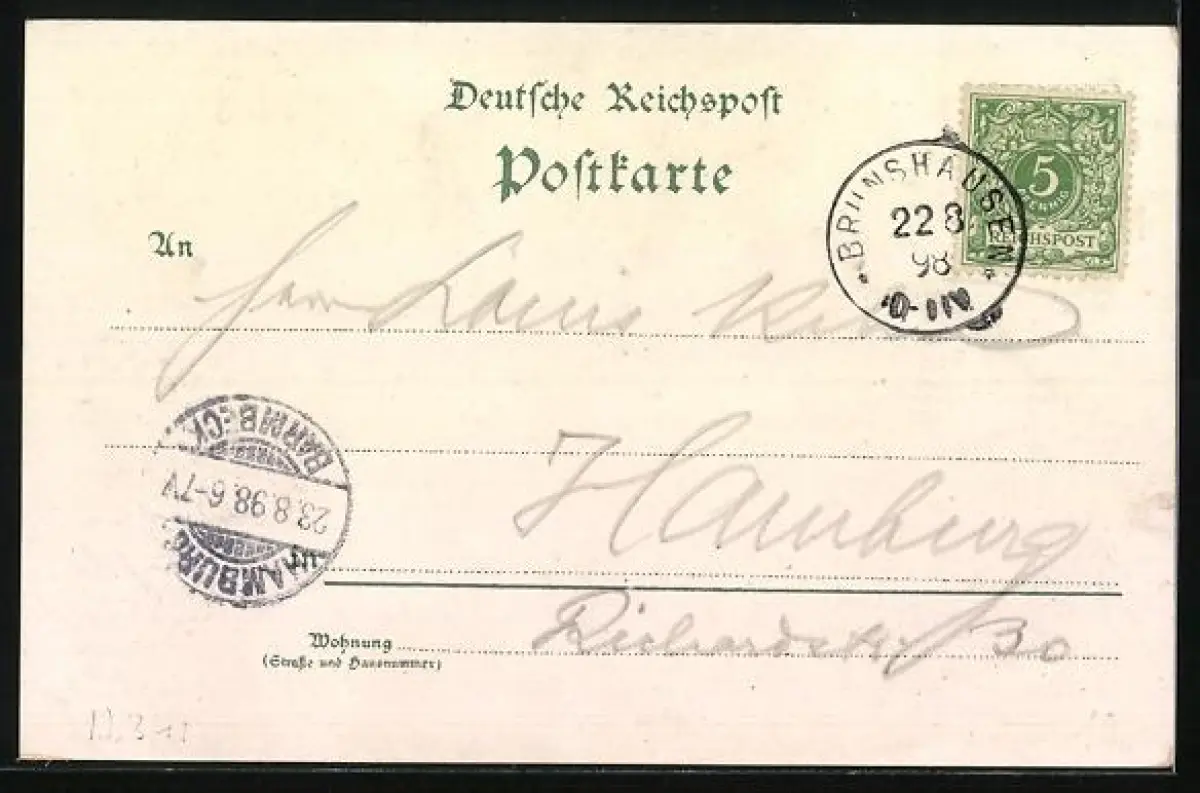 Deutsche Reichspost
Postkarte
5
PFENNIG
REICHSPOST
BRUNSHAUSEN
22 8
98
An
Herrn Louis
BARMBECK
23.8.98.6-7V
HAMBURG
Hamburg
in
Richardstr 30
Wohnung
(Straße und Hausnummer)